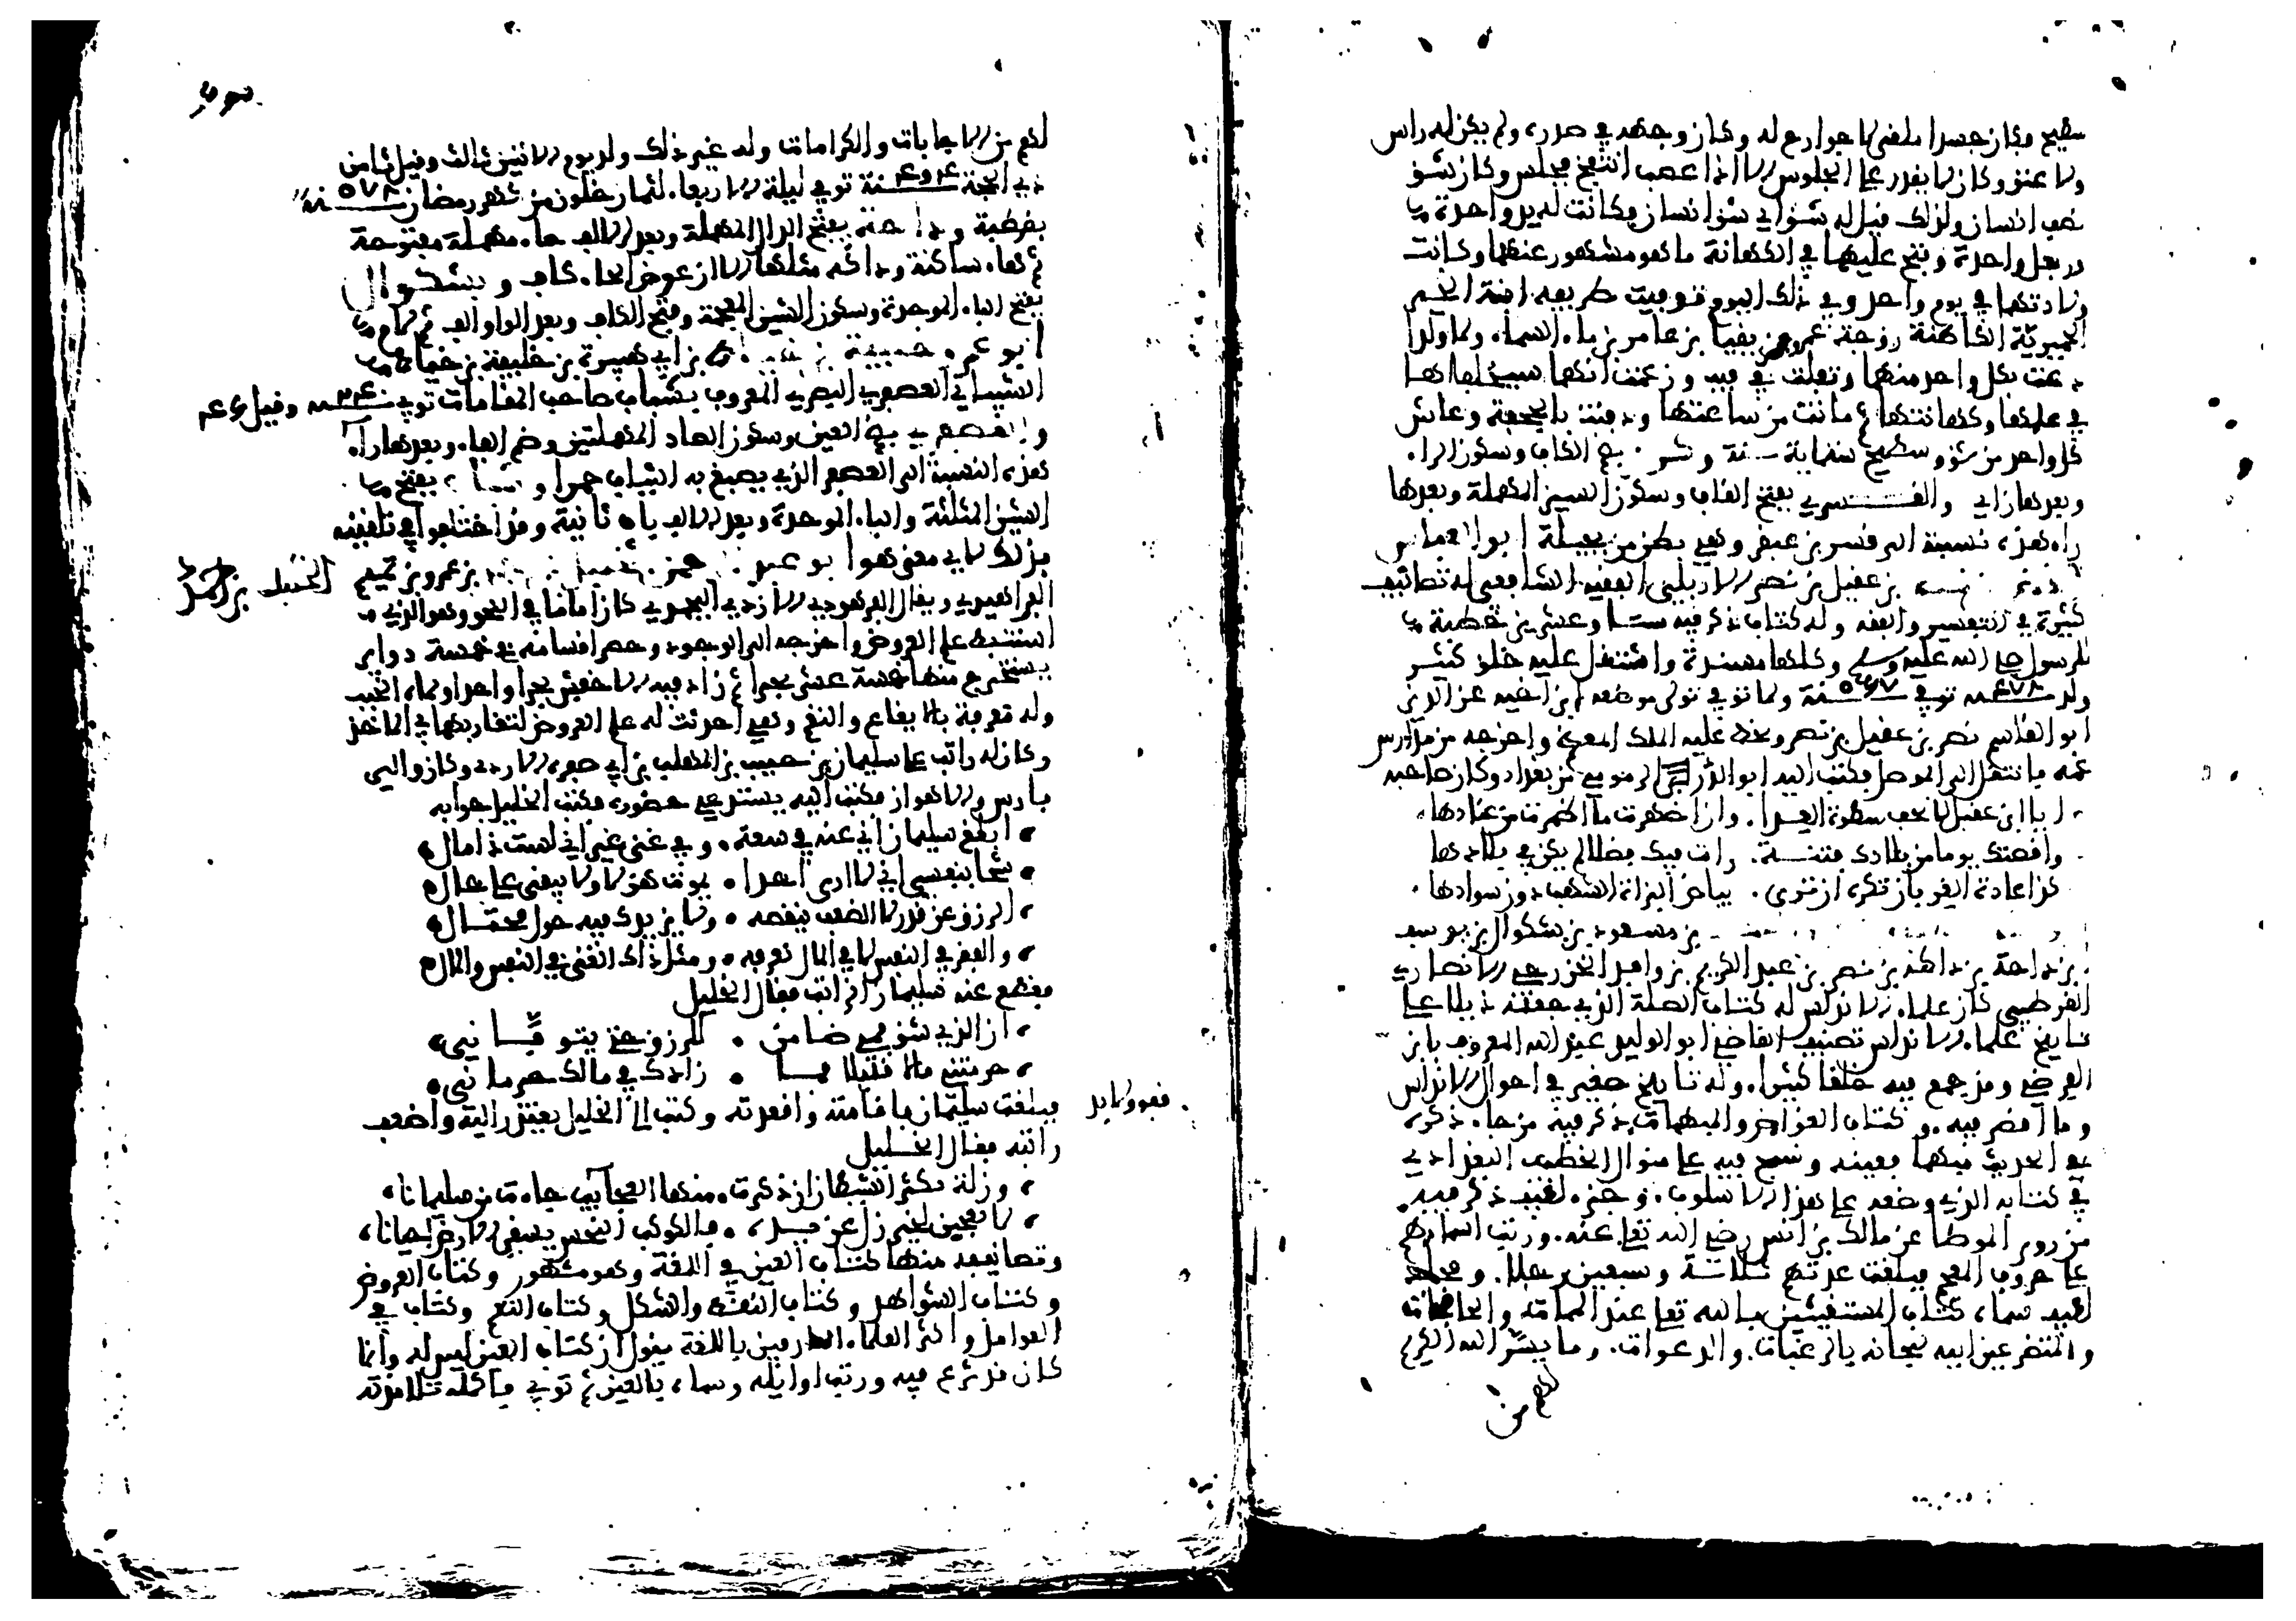 سطيح وكان جسدا ملقى لا جوارح له وكان وجهه في صدره ولم يكن له راس
ولا عنق وكان لا يقدر على الجلوس الا اذا غضب انتفخ فجلس وكان شق
نصف انسان ولذلك قيل له شق اي شق انسان فكانت له يد واحدة
ورجل واحدة وفتح عليهما في الكهانة ما هو مشهور عنهما وكانت
ولادتهما في يوم واحد وفي ذلك اليوم توفيت طريفه ابنة الخير
الحميرية الكاهنة زوجة عمرو مزيقيا بن عامر بن ماء السماء ولما ولدا
دعت بكل واحد منهما وتفلت في فيه وزعمت انهما سيخلفانها
في علمها وكهانتها ثم ماتت من ساعتها ودفنت بالجحفة وعاش
كل واحد من شق وسطيح ستماية سنة وكرز بضم الكاف وسكون الراء
وبعدها زاي والقسري بفتح القاف وسكون السين المهملة وبعدها
راء هذه نسبة الى قسر بن عبقر وهي بطن من بجيلة ابو العباس
بن عقيل بن نصر الاربلي الفقيه الشافعي له تصانيف
كثيرة في التفسير والفقه وله كتاب ذكر فيه ستا وعشرين خطبة
للرسول صلى الله عليه وسلم وكلها مسندة واشتغل عليه خلق كثير
ولد سنة ٤٧٨ توفي سنة ٥٦٧ ولما توفي تولى موضعه ابن اخيه عز الدين
ابو القاسم نصر بن عقيل بن نصر وسخط عليه الملك المعظم واخرجه من
فانتقل الى الموصل فكتب اليه ابو الدر الرومي من بغداد وكان صاحبه
ايا ابن عقيل لا تخف سطوة العدا وان اظهرت ما اضمرت من عنادها
واقصتك يوما من بلادك فتنة رات فيك فضلا لم يكن في بلادها
كذا عادة الغربان تكره ان ترى بياض البزاة الشهب دون سوادها
بن مسعود بن بشكوال بن يوسف
بن داحة بن داكه بن نصر بن عبد الكريم بن وافد الخزرجي الانصاري
القرطبي كان علماء الاندلس له كتاب الصلة الذي جعلته ذيلا على
تاريخ علماء الاندلس تصنيف القاضي ابو الوليد عبد الله المعروف بابن
الفرضي وقد جمع فيه خلقا كثيرا وله تاريخ صغير في احوال الاندلس
وما اقصر فيه وكتاب الغوامض والمبهمات ذكر فيه من جاء ذكره
في الحديث مبهما فعينه ونسج فيه على منوال الخطيب البغدادي
في كتابه الذي وضعه على هذا الاسلوب وجزء لطيف ذكر فيه
من روى الموطا عن مالك بن انس رضي الله تعالى عنه ورتب اسماءهم
على حروف المعجم فبلغت عدتهم ثلاثة وسبعين رجلا ومجلد
لطيف سماه كتاب المستغيثين بالله تعالى عند المهمات والحاجات
والمتضرعين اليه سبحانه بالرغبات والدعوات وما يسر الله الكريم
لهم من
لهم من الاجابات والكرامات وله غير ذلك ولد يوم الاثنين ثالث وقيل ثامن
ذي الحجة سنة ٤٩٤ توفي ليلة الاربعاء لثمان خلون من شهر رمضان سنة ٥٧٨
بقرطبة وداحة بفتح الدال المهملة وبعد الالف حاء مهملة مفتوحة
ثم هاء ساكنة وداكه مثلها الا ان عوض الحاء كاف وبشكوال
بفتح الباء الموحدة وسكون الشين المعجمة وفتح الكاف وبعد الواو الف ثم لام
ابو عمرو خليفة بن خياط بن ابي هبيرة بن خليفة بن خياط
الشيباني العصفري البصري المعروف بشباب صاحب الطبقات توفي سنة وقيل
والعصفري بضم العين وسكون الصاد المهملتين وضم الفاء وبعدها راء
هذه النسبة الى العصفر الذي يصبغ به الثياب حمرا وشباب بفتح
الشين المثلثة والباء الموحدة وبعد الالف باء ثانية وقد اختلفوا في تلقيبه
بذلك لاي معنى هو ابو عبد الرحمن الخليل بن احمد بن عمرو بن تميم
الخليل بن احمد
الفراهيدي ويقال الفرهودي الازدي اليحمدي كان اماما في النحو وهو الذي
استنبط علم العروض واخرجه الى الوجود وحصر اقسامه في خمسة دواير
يستخرج منها خمسة عشر بحرا ثم زاد فيه الاخفش بحرا واحدا وسماه الخبب
وله معرفة بالايقاع والنغم وهي احدثت له علم العروض لتقاربهما في الماخذ
وكان له راتب على سليمان بن حبيب بن المهلب بن ابي صفره الازدي وكان والي
فارس والاهواز فكتب اليه يستدعي حضوره فكتب الخليل جوابه
ابلغ سليمان اني عنه في سعة وفي غنى غير اني لست ذا مال
شحا بنفسي اني لا ارى احدا يموت هزلا ولا يبقى على حال
الرزق عن قدر لا الضعف ينقصه ولا يزيدك فيه حول محتال
والفقر في النفس لا في المال نعرفه ومثل ذاك الغنى في النفس والمال
فقطع عنه سليمان الراتب فقال الخليل
ان الذي شق فمي ضامن للرزق حتى يتوفاني
حرمتني مالا قليلا فما زادك في مالك حرماني
فبلغت سليمان فاقامته واقعدته وكتب الى الخليل يعتذر اليه واضعف
راتبه فقال الخليل
وزلة يكثر الشيطان ان ذكرت منها العجايب جاءت من سليمانا
لا تعجبن لخير زل عن يده فالكوكب النحس يسقي الارض احيانا
وتصانيفه منها كتاب العين في اللغة وهو مشهور وكتاب العروض
وكتاب الشواهد وكتاب النقط والشكل وكتاب النغم وكتاب في
العوامل واكثر العلماء العارفين باللغة يقول ان كتاب العين ليس له وانما
كان قد شرع فيه ورتب اوايله وسماه بالعين ثم توفي فاكمله تلامذته